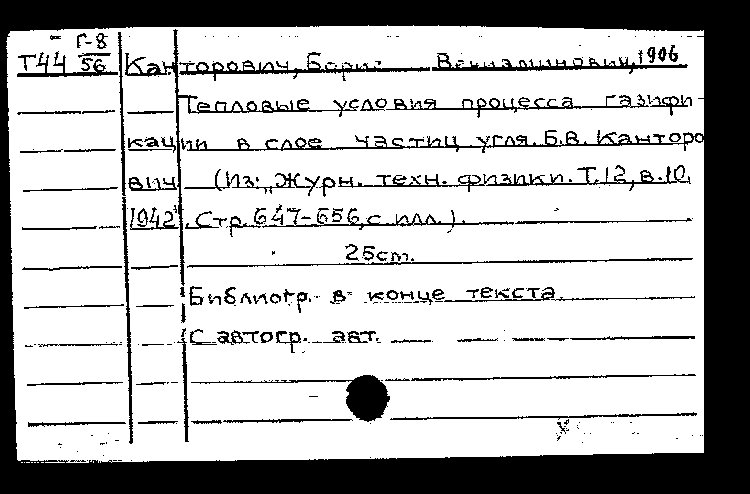 Г-8
Т44 56 Канторович, Борис Вениаминович, 1906
Тепловые условия процесса газифи-
кации в слое частиц угля. Б.В. Канторо
вич (Из: „Журн. техн. физики. Т.12, в.10,
1942". Стр. 647-656, с илл.).
25cm.
Библиогр. в конце текста.
С автогр. авт.